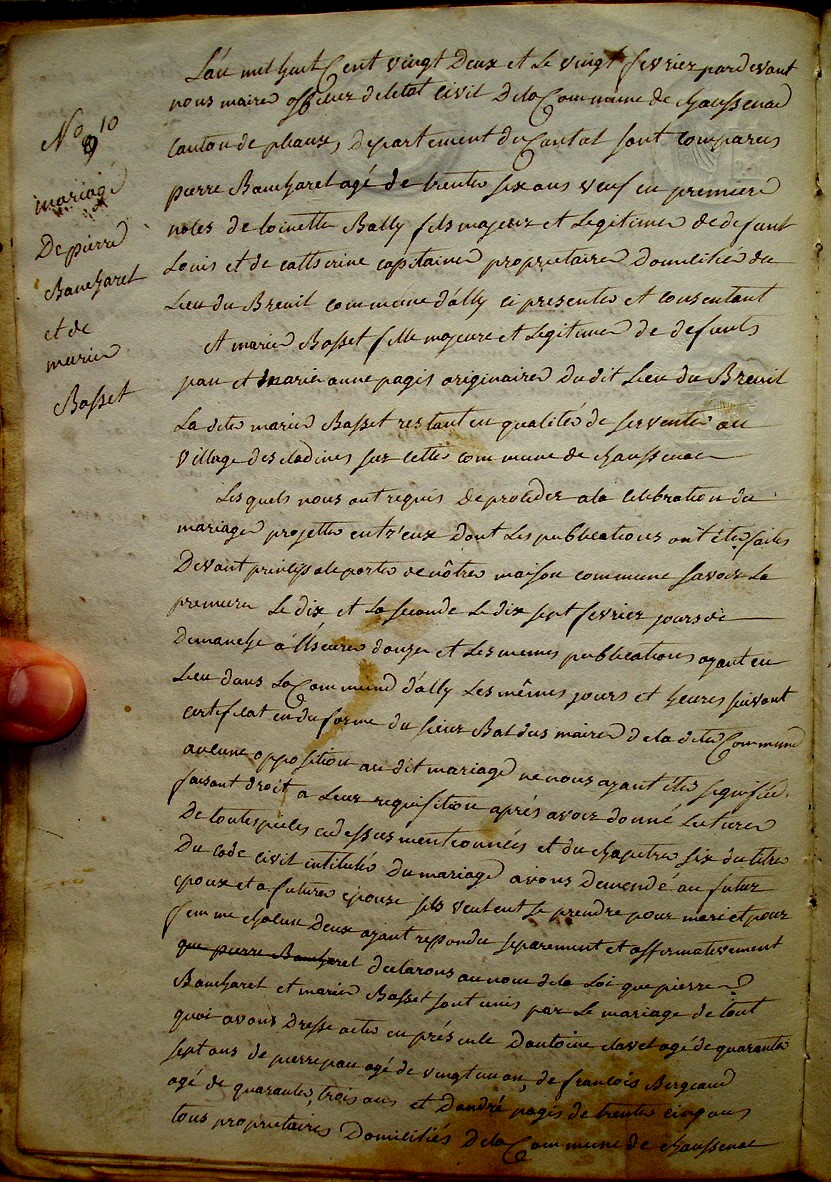 No 10
9
mariage
De pierre
Baucharel
et de
marie
Basset
L'an mil huit Cent vingt Deux et Le vingt fevrier pardevant
nous maire officier de letat Civil Dela Commune de chaussenac
Canton de pleaux, Departement du Cantal sont comparus
pierre Baucharel agé de trente six ans veuf en premiere
noces de toinette Bally fils majeur et Legitime de defunt
Louis et de catherine capitaine proprietaire Domicilié au
Lieu du Breuil commune d'ally ci presente et consentant
et marie Basset fille majeure et Legitime de defunts
jean et marie anne pagis originaire du dit Lieu du Breuil
La dite marie Basset restant en qualité de servente au
village des cladines sur cette commune de chaussenac
Lesquels nous ont requis de proceder ala celebration du
mariage projetté entr'eux Dont Les publications ont été faites
Devant principale porte de nôtre maison commune savoir La
premiere Le dix et La seconde Le dix sept fevrier jours de
Dimanche a l'heure douze et Les memes publications ayant eu
Lieu dans La Commune d'ally Les mêmes jours et heures suivant
certificat en du forme du sieur Baldus maire de la dite Commune
aucune opposition au dit mariage ne nous ayant été signifiée
faisant droit a Leur requisition aprés avoir donné Lecture
De toutes pieces cidessus mentionnées et du chapitre six du titre
Du code civil intitulé Du mariage avons Demendé au futur
epoux et a future epouse sils veulent se prendre pour mari et pour
femme chacun Deux ayant repondu separement et affirmativement
que pierre Baucharel declarons au nom de la Loi que pierre
Baucharel et marie Basset sont unis par Le mariage de tout
quoi avons Dressé acte en présence Dantoine clavel agé de quarante
sept ans de pierre pau agé de vingt un an, de francois Bergeaud
agé de quarante, trois ans et Dandré pagis de trente cinq ans
tous proprietaires Domiciliés dela Commune de chaussenac